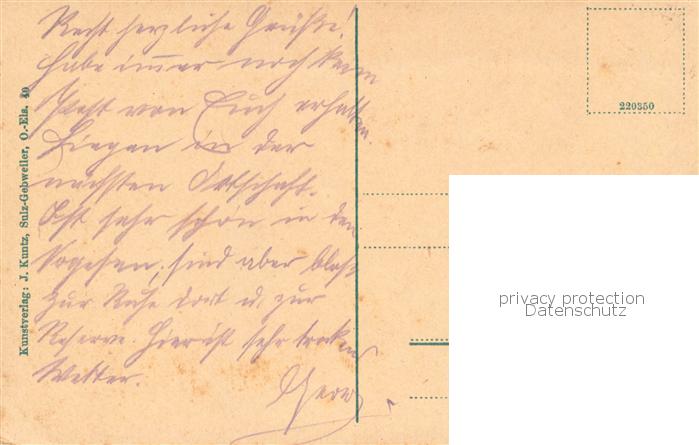 Recht herzliche Grüße!
Habe immer noch keine
Post von Euch erhalten.
Liegen in der
nächsten Ortschaft.
Ist sehr schön in den
Vogesen, sind aber bloß
zur Ruhe dort u. zur
Reserve. Hier ist sehr trocken
Wetter.
Kunstverlag: J. Kuntz, Sulz-Gebweiler, O.-Els. 49
220350
privacy protection
Datenschutz